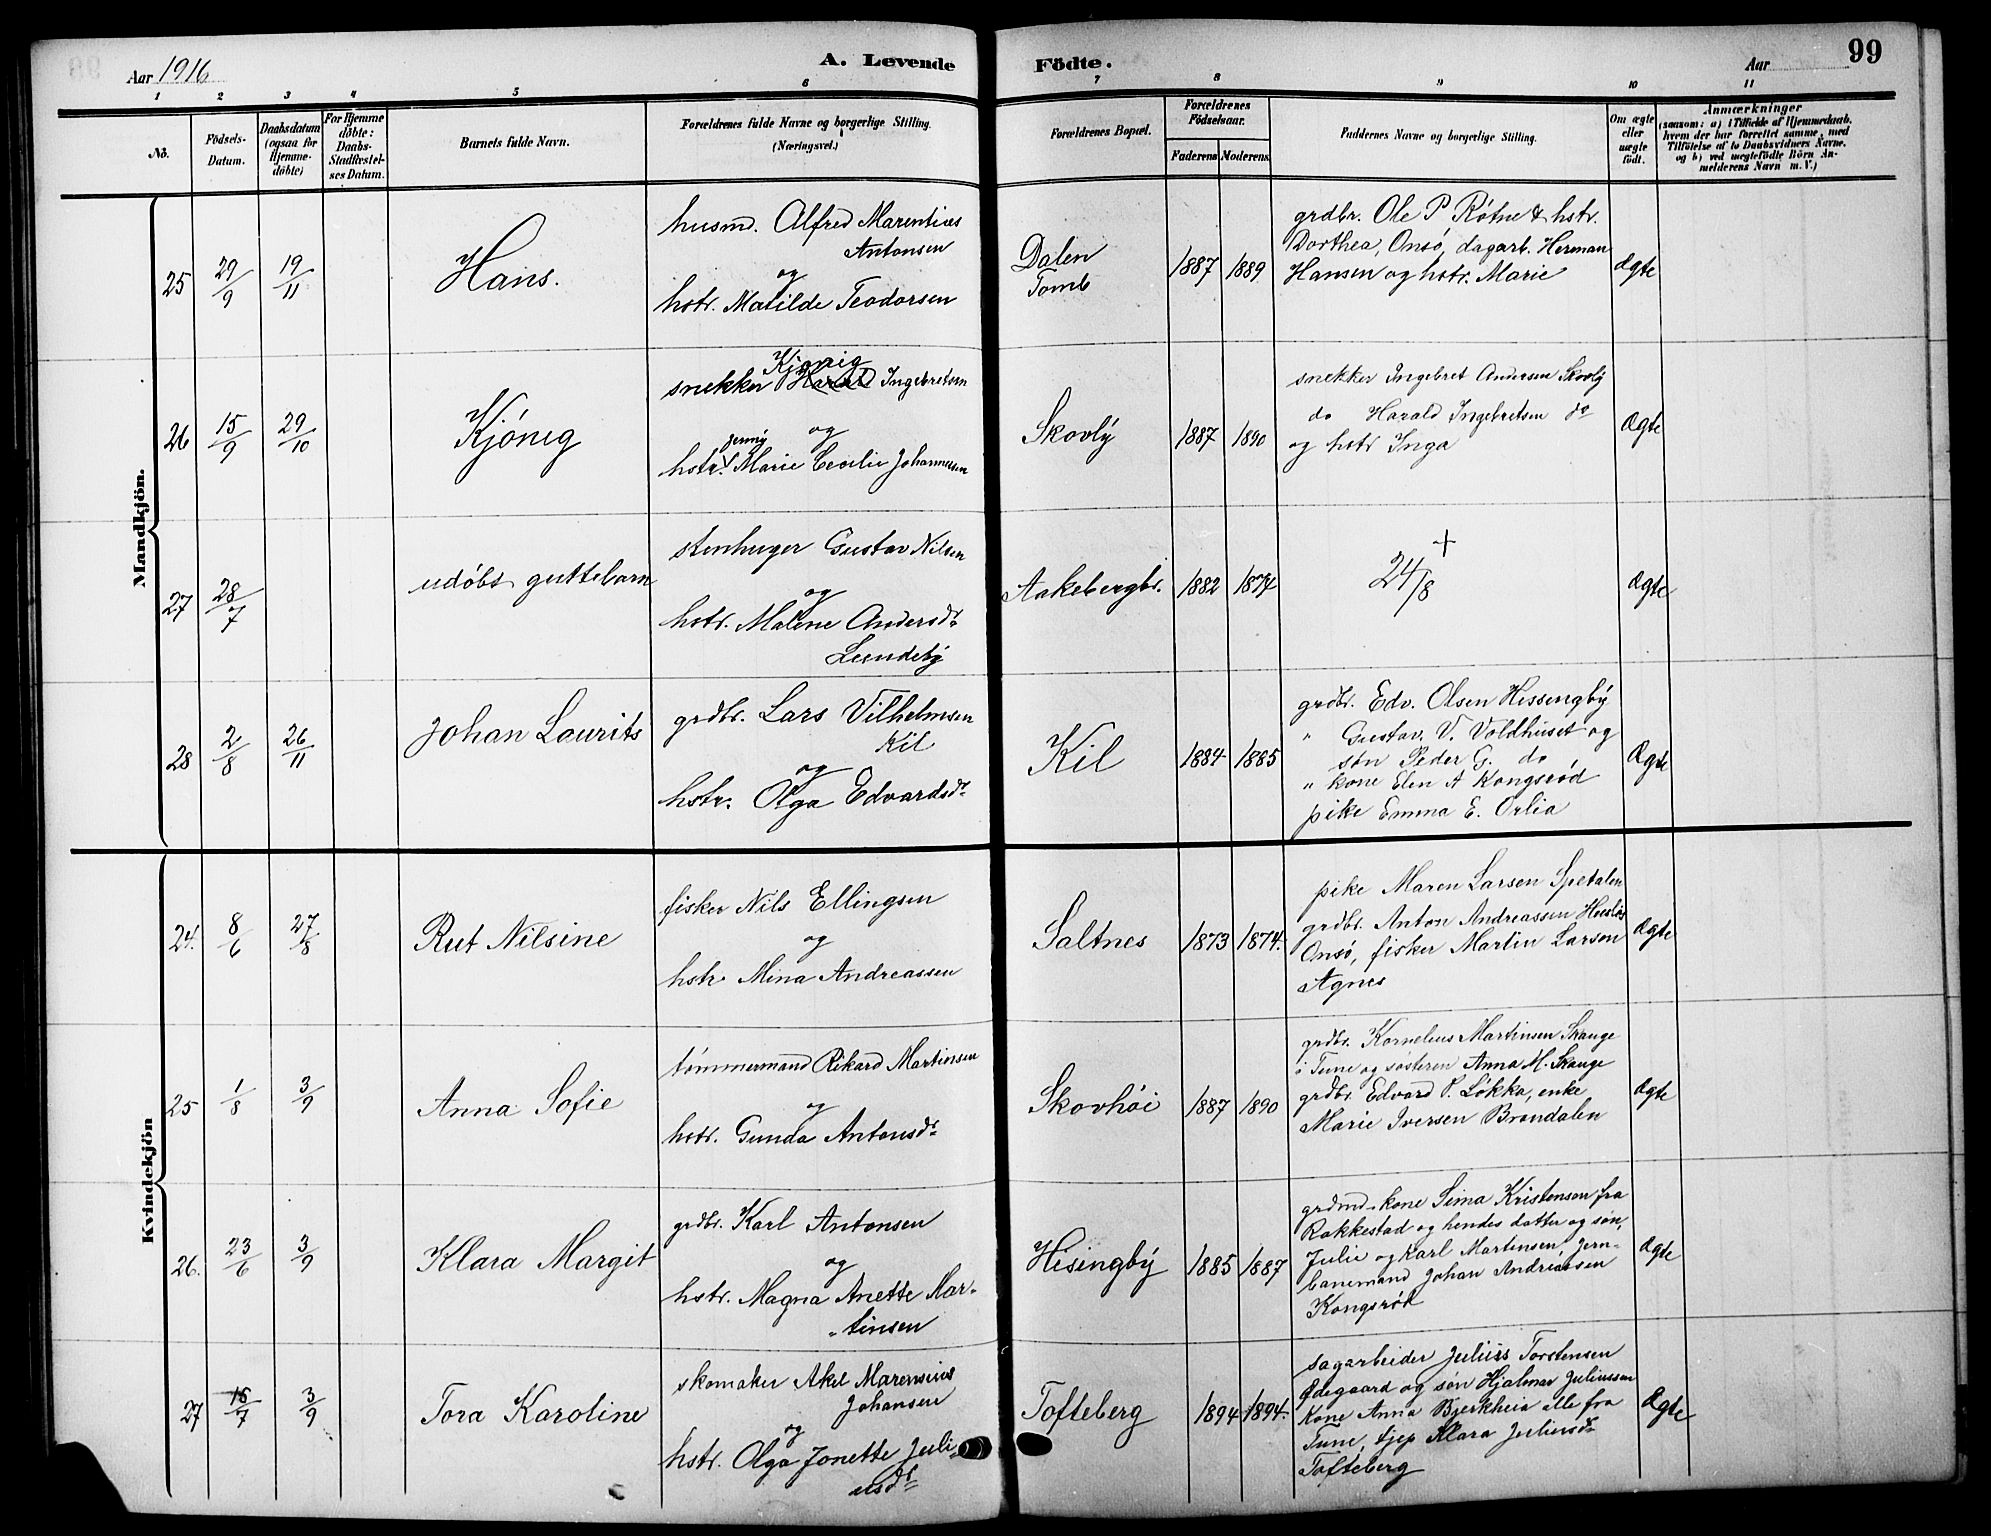 Aar 1916
A. Levende Födte.
Aar
99
1 2 3 4 5 6 7 8 9 10 11
No.
Födsels-
Datum.
Daabsdatum
(ogsaa for
Hjemme-
döbte)
For Hjemme
döbte:
Daabs-
Stadfæstel-
ses Datum.
Barnets fulde Navn.
Forældrenes fulde Navne og borgerlige Stilling.
(Næringsvei.)
Forældrenes Bopæl.
Forældrenes
Födselsaar.
Faderens Moderens
Faddernes Navne og borgerlige Stilling.
Om ægte
eller
uægte
født.
Anmærkninger
(saasom: a) i Tilfælde af Hjemmedaab,
hvem der har forrettet samme, med
Tilföielse af to Daabsvidners Navne,
og b) ved uægtefödte Börn An-
melderens Navn m. V.)
Mandkjön.
25
29/9
19/11
Hans.
husmd. Alfred Marentius
Antonsen
og
hstr. Matilde Teodorsen
Dalen
Tomb
1887
1889
grdbr. Ole P Røtne & hstr.
Dorthea, Onsö, dagarb. Herman
Hansen og hstr. Marie
Ægte
26
15/9
29/10
Kjönig
Kjönig
snekker Harald Ingebretsen
og
jenny
hstr. Marie Cecilie Johannesen
Skovlÿ
1887
1890
snekker Ingebret Andersen Skovlÿ
do Harald Ingebretsen do
og hstr Inga
Ægte
27
28/7
udöbt guttebarn
stenhuger Gustav Nilsen
og
hstr. Malene Andersdr
Lundebÿ
Aakebergbr.
1882
1874
+
24/8
Ægte
28
2/8
26/11
Johan Laurits
grdbr. Lars Vilhelmsen
Kil
og
hstr. Olga Edvardsdr
Kil
1884
1885
grdbr. Edv. Olsen Hissengbÿ
" Gustav. V. Voldhuset og
søn Peder G. do
" kone Elen A Kongsrød
pike Emma E. Orlia
Ægte
Kvindekjön
24.
8/6
27/8
Rut Nilsine
fisker Nils Ellingsen
og
hstr Mina Andreassen
Saltnes
1873
1874.
pike Maren Larsen Spetalen
grdbr. Anton Andreassen
Onsö, fisker Martin Larsen
Agnes
Ægte
25
1/8
3/9
Anna Sofie
tömmermand Rikard Martinsen
og
hstr. Gunda Antonsdr
Skovhöi
1887
1890
grdbr. Kornelius Martinsen Skauge
i Tune og søsteren Anna M. Skauge
grdbr. Edvard P. Løkka, enke
Marie Iversen Brandalen
Ægte
26.
23/6
3/9
Klara Margit
grdbr. Karl Antonsen
og
hstr. Magna Anette Mar-
tinsen
Hisingbÿ
1885
1887
grdmd.kone Sima Kristensen fra
Rakkestad og hendes datter og søn,
Julie og Karl Martinsen, Jern-
banemand Johan Andreassen
Kongsrød
Ægte
27
15/7
3/9
Tora Karoline
skomaker Aksel Marensius
Johansen
og
hstr. Olga Jonette Juli-
usdr
Tofteberg
1894
1894.
sagarbeider Julius Torstensen
Ødegaard og søn Hjalmar Juliussen
kone Anna Bjerkheia alle fra
Tune, tjep Klara Juliusdr
Tofteberg
Ægte